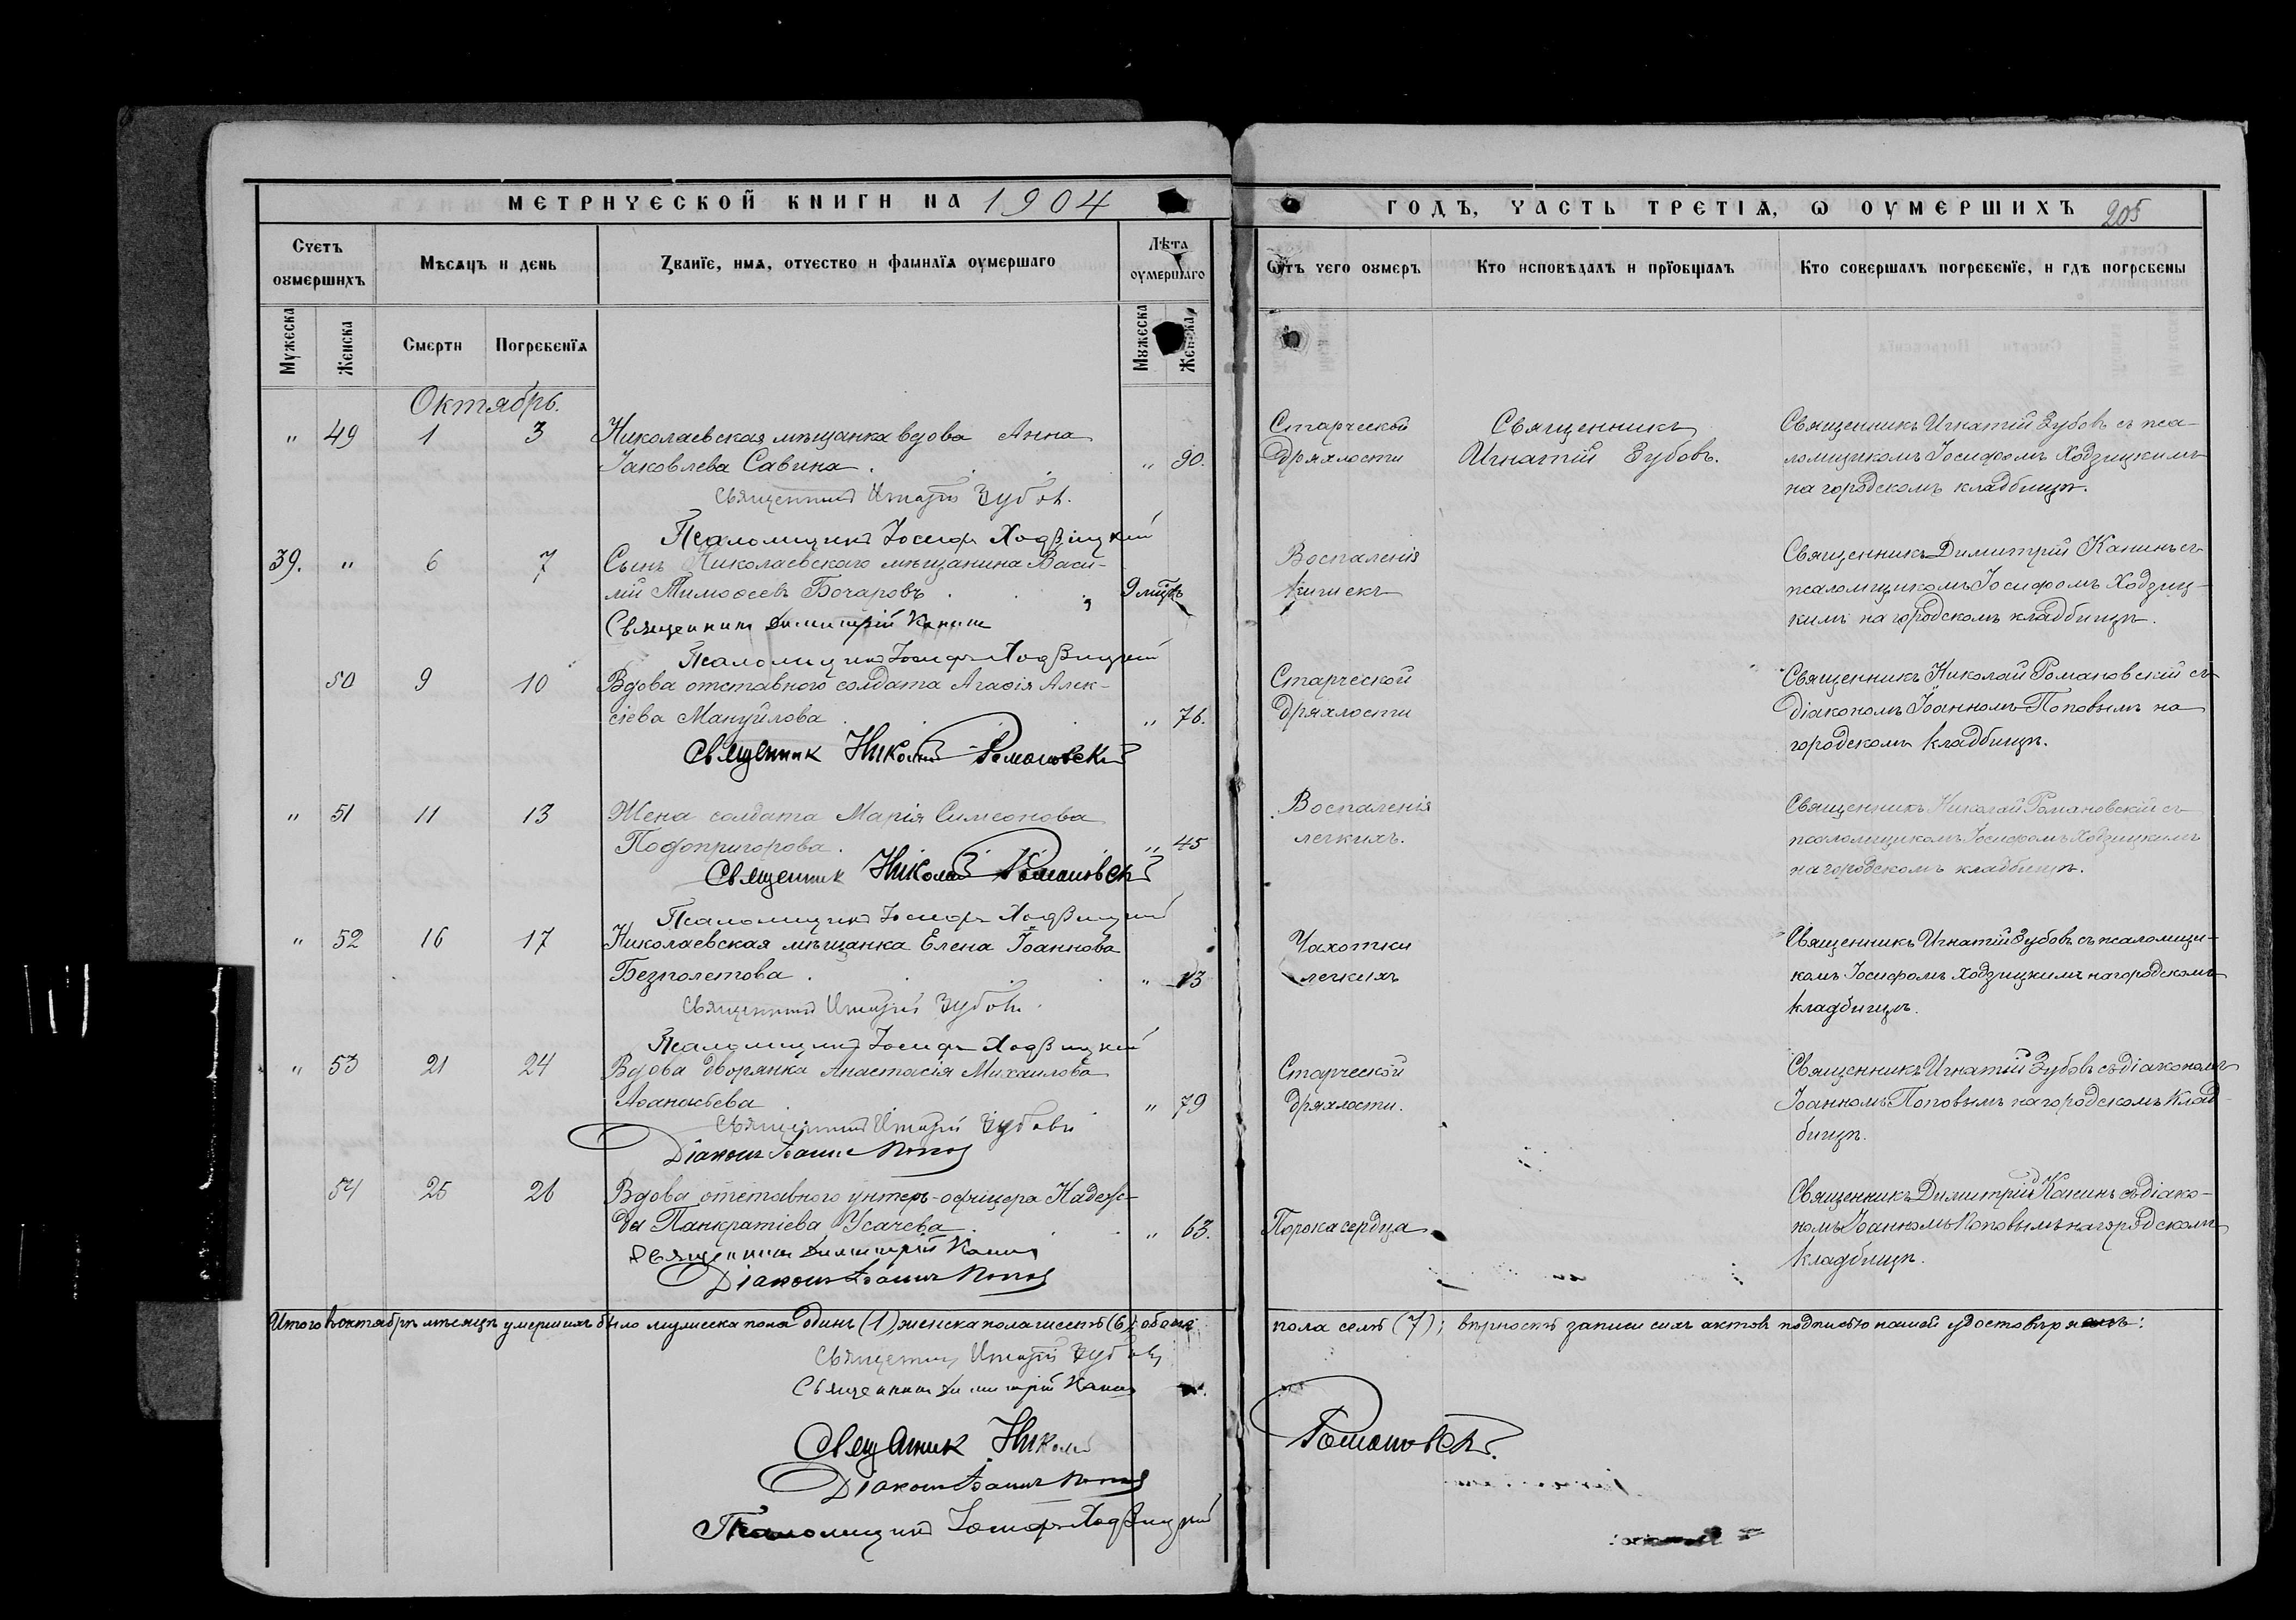 МЕТРИЧЕСКОЙ КНИГИ НА 1904
ГОДЪ, ЧАСТЬ ТРЕТІѦ, Ѡ ОУМЕРШИХЪ 205
Счетъ оумершихъ
Мѣсѧцъ и день
Званіе, имѧ, отчество и фамиліѧ оумершаго
Лѣта оумершаго
Ѿтъ чего оумеръ
Кто исповѣдалъ и пріобщалъ
Кто совершалъ погребеніе, и гдѣ погребены
Мужеска
Женска
Смерти
Погребеніѧ
Мужеска
Женска
Октябрь.
" 49 1 3 Николаевская мѣщанка вдова Анна
Іаковлева Савина . . . " 90.
Священникъ Игнатій Зубовъ.
Псаломщикъ Іосифъ Ходзицкій
Старческой
дряхлости
Священникъ
Игнатій Зубовъ.
Священникъ Игнатій Зубовъ съ пса-
ломщикомъ Іосифомъ Ходзицкимъ
на городскомъ кладбищѣ.
39. " 6 7 Сынъ Николаевскаго мѣщанина Васи-
лій Тимоѳеевъ Бочаровъ . . 9 мцъ
Священникъ Димитрій Канинъ
Псаломщикъ Іосифъ Ходзицкій
Воспаленія
кишекъ
Священникъ Димитрій Канинъ съ
псаломщикомъ Іосифомъ Ходзиц-
кимъ на городскомъ кладбищѣ.
50 9 10 Вдова отставного солдата Агаѳія Алек-
сіева Мануйлова . . . " 76.
Священник Николай Романовский
Старческой
дряхлости
Священникъ Николай Романовскій съ
діакономъ Іоанномъ Поповымъ на
городскомъ кладбищѣ.
" 51 11 13 Жена солдата Марія Симеонова
Подопригорова. . . " 45
Священник Николай Романовский
Псаломщикъ Іосифъ Ходзицкій
Воспаленія
легкихъ.
Священникъ Николай Романовскій съ
псаломщикомъ Іосифомъ Ходзицкимъ
на городскомъ кладбищѣ.
" 52 16 17 Николаевская мѣщанка Елена Іоаннова
Безполетова . . . " 13
Священникъ Игнатій Зубовъ.
Псаломщикъ Іосифъ Ходзицкій
Чахотки
легкихъ
Священникъ Игнатій Зубовъ съ псаломщи-
комъ Іосифомъ Ходзицкимъ на городскомъ
кладбищѣ.
" 53 21 24 Вдова дворянка Анастасія Михаилова
Аѳанасьева . . " 79
Священникъ Игнатій Зубовъ
Діаконъ Іоаннъ Поповъ
Старческой
дряхлости.
Священникъ Игнатій Зубовъ съ діакономъ
Іоанномъ Поповымъ на городскомъ клад-
бищѣ.
54 25 26 Вдова отставного унтеръ-офицера Надеж-
да Панкратіева Усачева . . " 63.
Священникъ Димитрій Канинъ
Діаконъ Іоаннъ Поповъ
Порока сердца
Священникъ Димитрій Канинъ съ діако-
номъ Іоанномъ Поповымъ на городскомъ
кладбищѣ.
Итого въ октябрѣ мѣсяцѣ умершихъ было мужеска пола одинъ (1), женска пола шесть (6), обоего
пола семь (7); вѣрность записи сихъ актовъ подписью нашей удостовѣряемъ:
Священникъ Игнатій Зубовъ
Священникъ Димитрій Канинъ
Священник Николай
Романовский.
Діаконъ Іоаннъ Поповъ
Псаломщикъ Іосифъ Ходзицкій